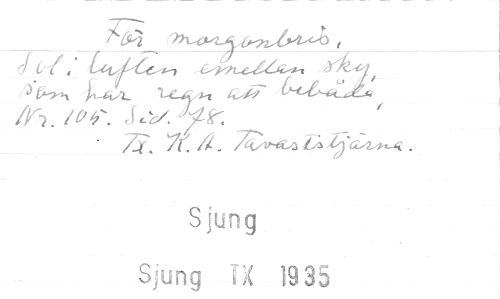 För morgonbris,
Sol i luften emellan sky,
som har regn att bebåda,
Nr. 105. Sid. 78.
Tx. K. A. Tavaststjärna.
Sjung
Sjung TX 1935